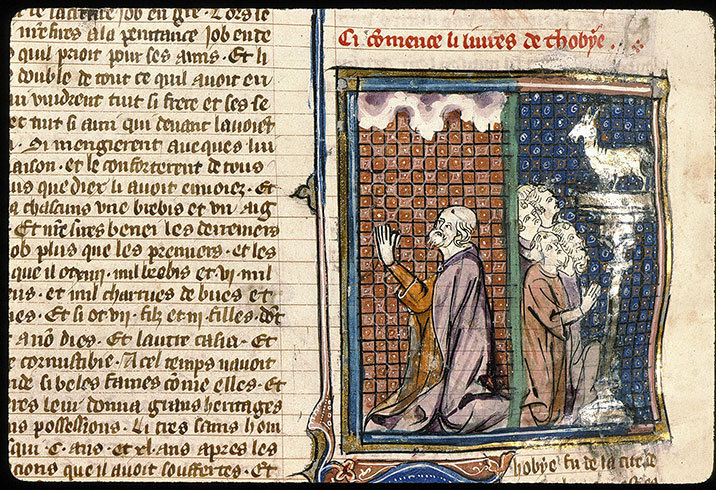 de la cite. Job en gre. Lors le
nr̃e sires a la penitance Job en de
quil prioit pour ses amis. Et li
double de tout ce quil avoit eu
ui vindrent tuit si frere et ses se
et tuit si ami qui devant lavoiēt
. Si mengierent avecques lui
aison. et le conforterent de tous
us que diex li avoit envoiez. Et
a chascuns une brebis et un aig
. Et nr̃e sires benei les derreniers
ob plus que les premiers. et les
que il ot xiiij. mil brebis et vi mil
eus. et mil charrues de bues et
nes. Et si ot vij. filz et iij. filles. dōt
anō dies. Et lautre casiei. Et
e cornustibie. A cel temps navoit
nde si beles fames cōme elles. Et
res leur donna grans heritages
ns possessions. Li tres sains hom
qui C. ans. et xl. ans apres les
cions que il avoit souffertes. Et
Ci cōmence li livres de thobye.
hobye fu de la cite de